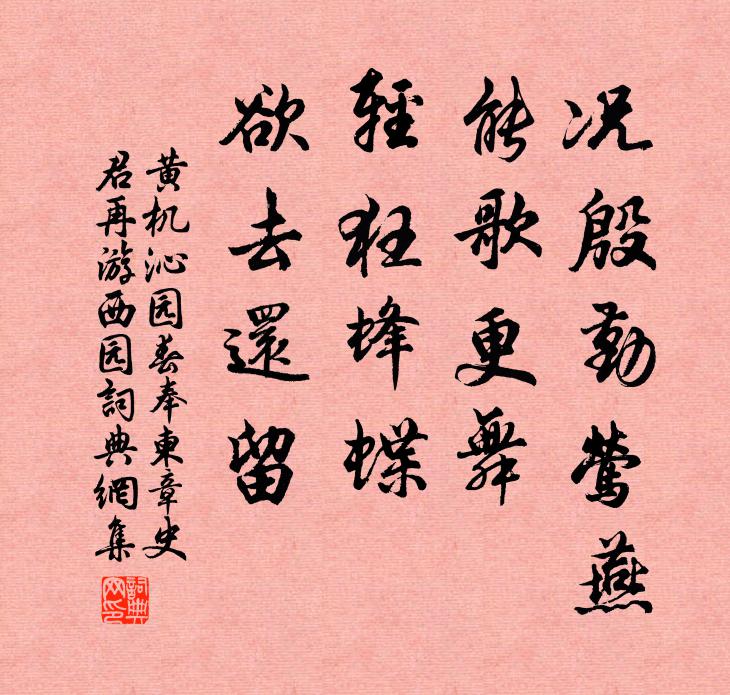 况殷勤莺燕
能歌更舞
輕狂蜂蝶
欲去還留
黄机沁园春奉東章史
君再游西园詞典網集
詞典
网印